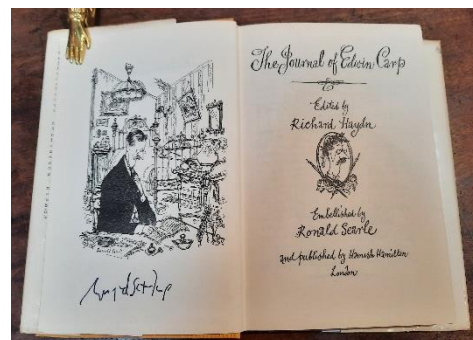 The Journal of Edwin Carp
Edited by
Richard Haydn
Embellished by
Ronald Searle
and published by Hamish Hamilton
London